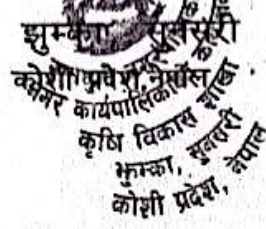 झुम्का सुनसरी
कोशी प्रदेश, नेपाल
नगर कार्यपालिका
कृषि विकास शाखा
झुम्का, सुनसरी
कोशी प्रदेश, नेपाल